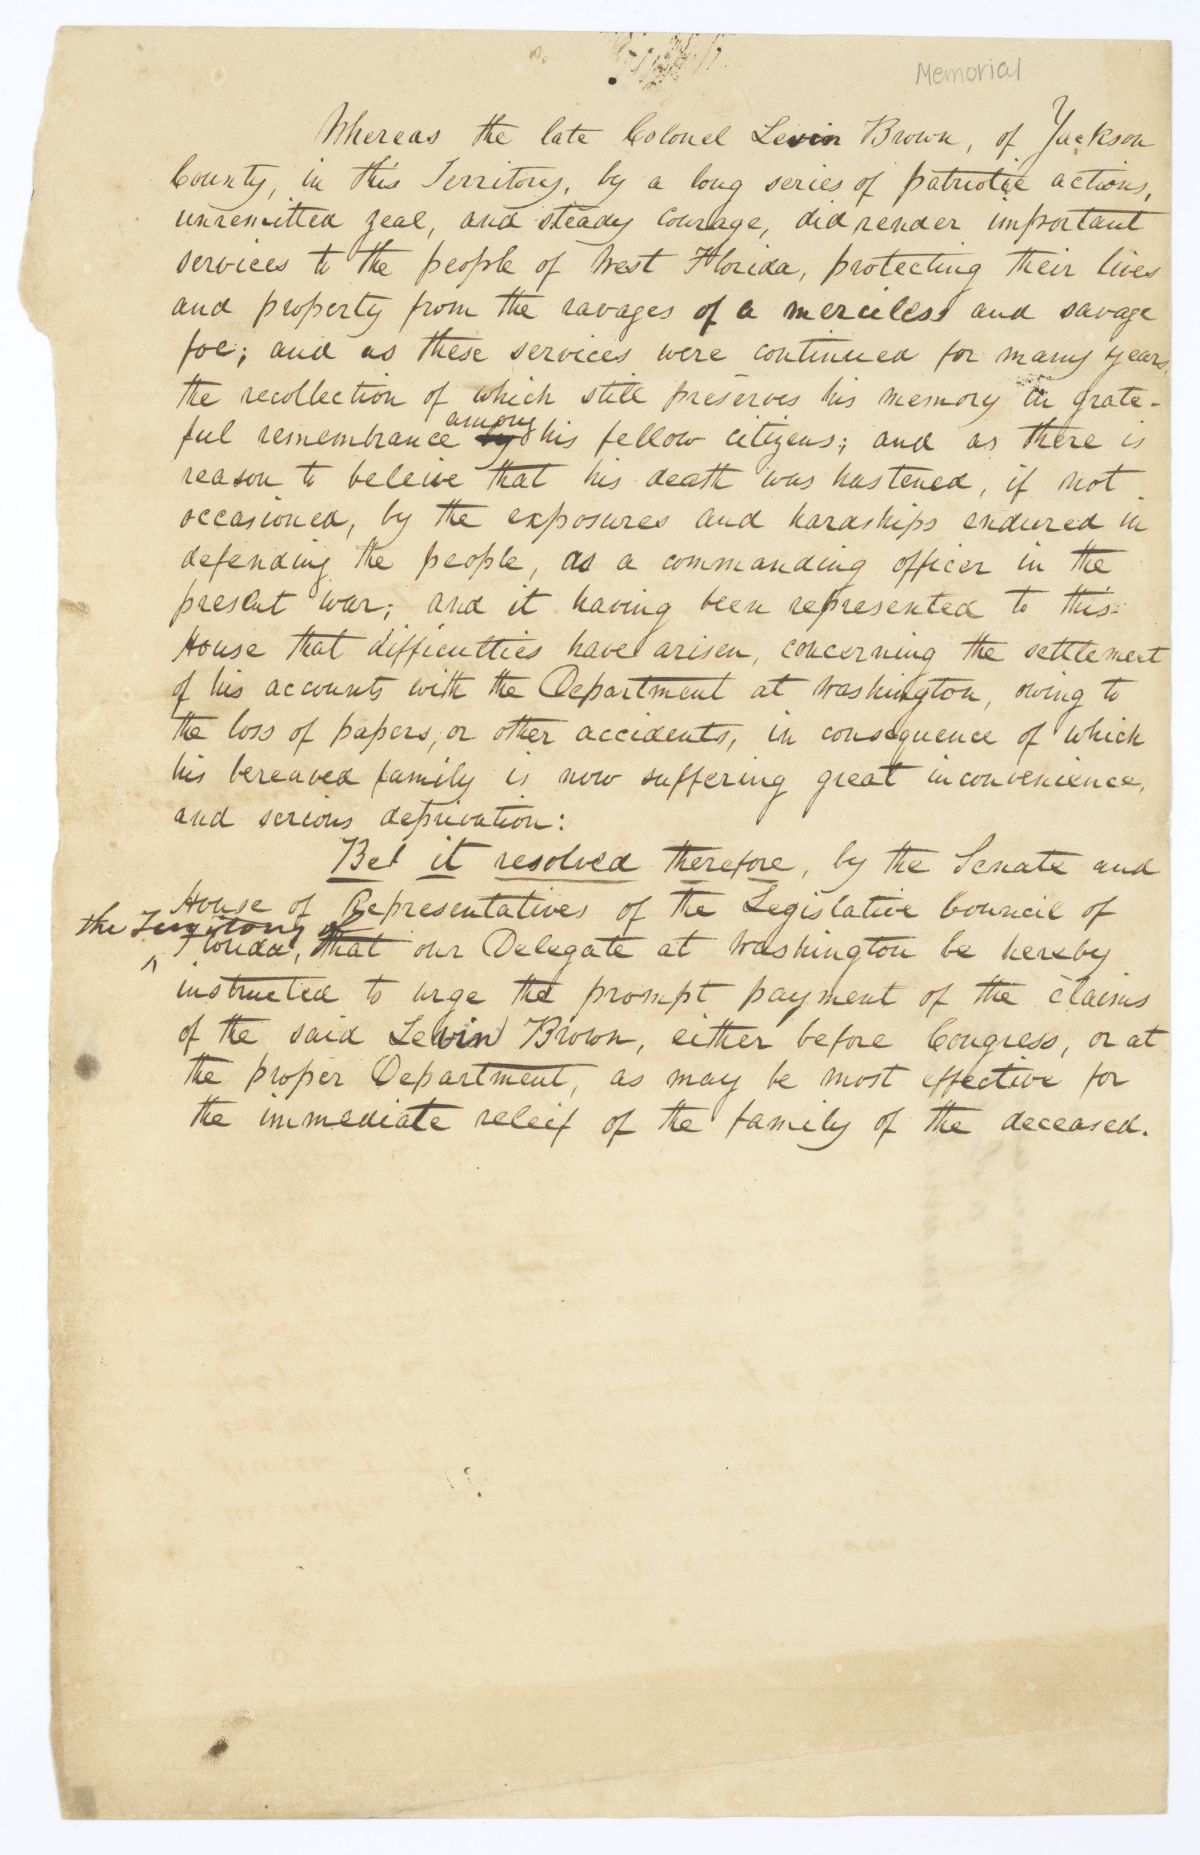 Memorial
Whereas the late Colonel Levin Brown, of Jackson
County, in this Territory, by a long series of patriotic actions,
unremitted zeal, and steady courage, did render important
services to the people of West Florida, protecting their lives
and property from the ravages of a merciless and savage
foe; and as these services were continued for many years,
the recollection of which still preserves his memory in grate-
ful remembrance among his fellow citizens; and as there is
reason to beleive that his death was hastened, if not
occasioned, by the exposures and hardships endured in
defending the people, as a commanding officer in the
present war; and it having been represented to this
House that difficulties have arisen, concerning the settlement
of his accounts with the Department at Washington, owing to
the loss of papers, or other accidents, in consequence of which
his bereaved family is now suffering great inconvenience,
and serious deprivation:
Be it resolved therefore, by the Senate and
House of Representatives of the Legislative Council of
the Territory of
Florida, that our Delegate at Washington be hereby
instructed to urge the prompt payment of the claims
of the said Levin Brown, either before Congress, or at
the proper Department, as may be most effective for
the immediate releif of the family of the deceased.